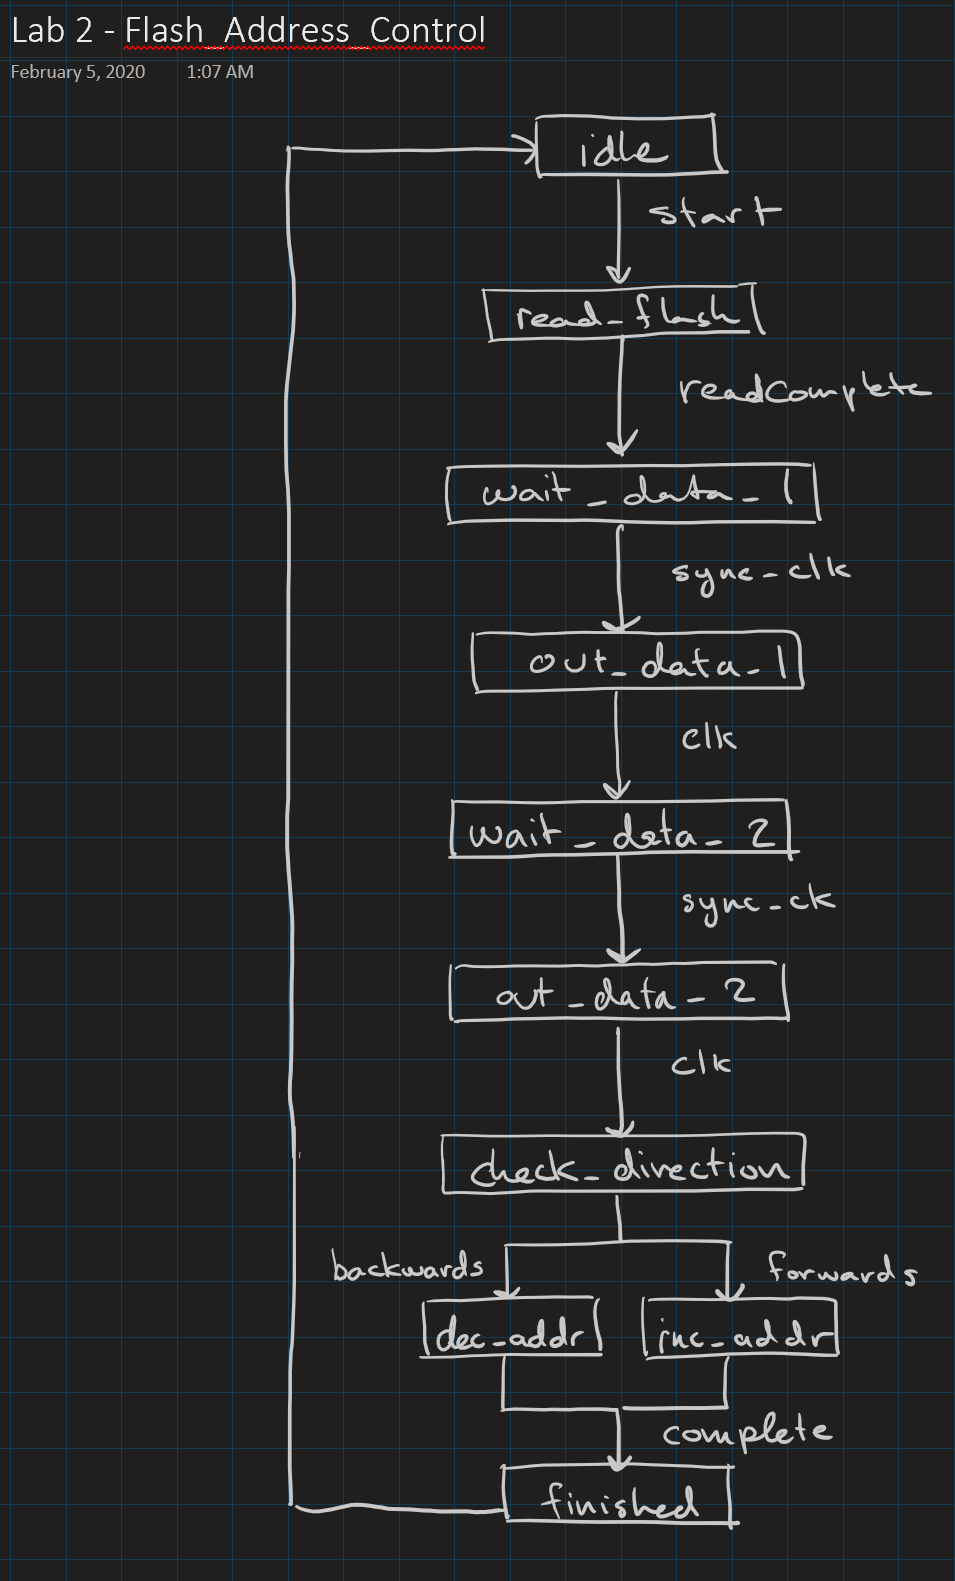 Lab 2 - Flash_Address_Control
February 5, 2020 1:07 AM
idle
start
read_flash
readComplete
wait_data_1
sync_clk
out_data_1
clk
wait_data_2
sync_ck
out_data_2
clk
check_direction
backwards forwards
dec_addr inc_addr
complete
finished